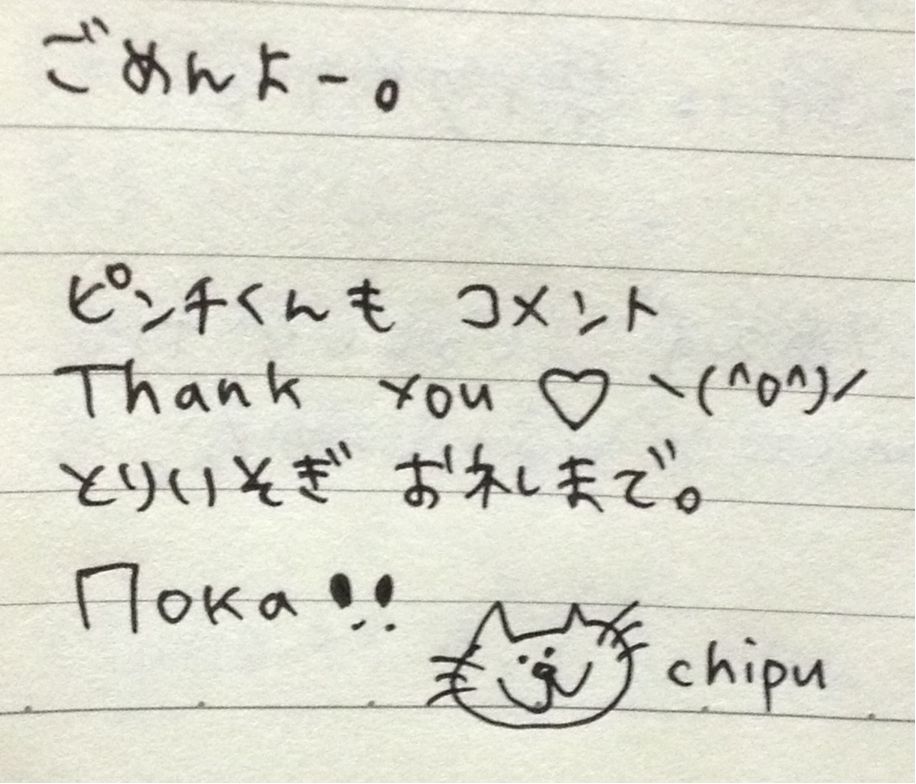 ごめんよー。
ピンチくんも コメント
Thank you ♡ ヽ(^o^)ノ
とりいそぎ お礼まで。
Пока!!
chipu